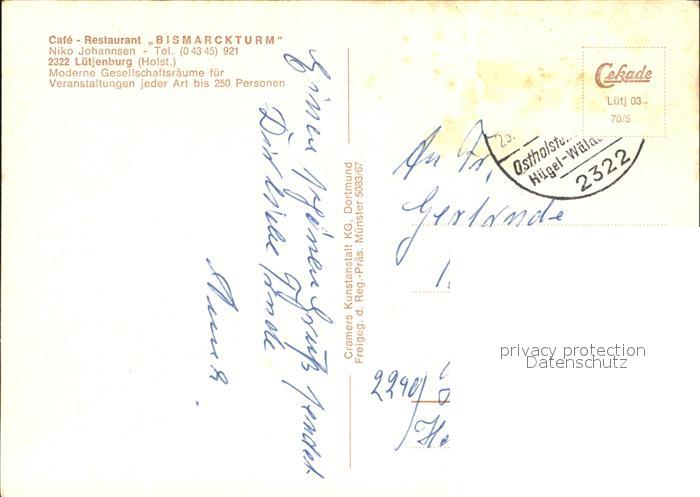 Café - Restaurant „BISMARCKTURM“
Niko Johannsen - Tel. (0 43 45) 921
2322 Lütjenburg (Holst.)
Moderne Gesellschaftsräume für
Veranstaltungen jeder Art bis 250 Personen
Einen schönen Gruß sendet
Dir liebe
Cramers Kunstanstalt KG, Dortmund
Freigeg. d. Reg.-Präs. Münster 5083/67
Cekade
Lütj 03
70/5
Hügel-Wälde
2322
An Fr.
privacy protection
Datenschutz